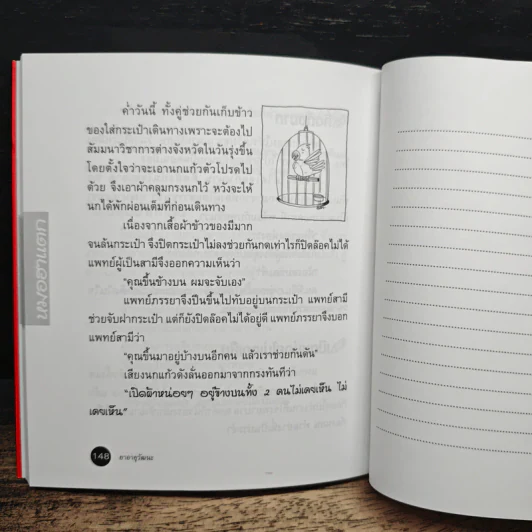 ค่ำวันนี้ ทั้งคู่ช่วยกันเก็บข้าว
ของใส่กระเป๋าเดินทางเพราะจะต้องไป
สัมมนาวิชาการต่างจังหวัดในวันรุ่งขึ้น
โดยตั้งใจว่าจะเอานกแก้วตัวโปรดไป
ด้วย จึงเอาผ้าคลุมกรงนกไว้ หวังจะให้
นกได้พักผ่อนเต็มที่ก่อนเดินทาง
เนื่องจากเสื้อผ้าข้าวของมีมาก
จนล้นกระเป๋า จึงปิดกระเป๋าไม่ลงช่วยกันกดเท่าไรก็ปิดล็อคไม่ได้
แพทย์ผู้เป็นสามีจึงออกความเห็นว่า
"คุณขึ้นข้างบน ผมจะจับเอง"
แพทย์ภรรยาจึงปีนขึ้นไปทับอยู่บนกระเป๋า แพทย์สามี
ช่วยจับฝากระเป๋า แต่ก็ยังปิดล็อคไม่ได้อยู่ดี แพทย์ภรรยาจึงบอก
แพทย์สามีว่า
"คุณขึ้นมาอยู่บ้างบนอีกคน แล้วเราช่วยกันดัน"
เสียงนกแก้วดังลั่นออกมาจากกรงทันทีว่า
"เปิดผ้าหน่อยๆ อยู่ข้างบนทั้ง 2 คนไม่เคยเห็น ไม่
เคยเห็น"
148